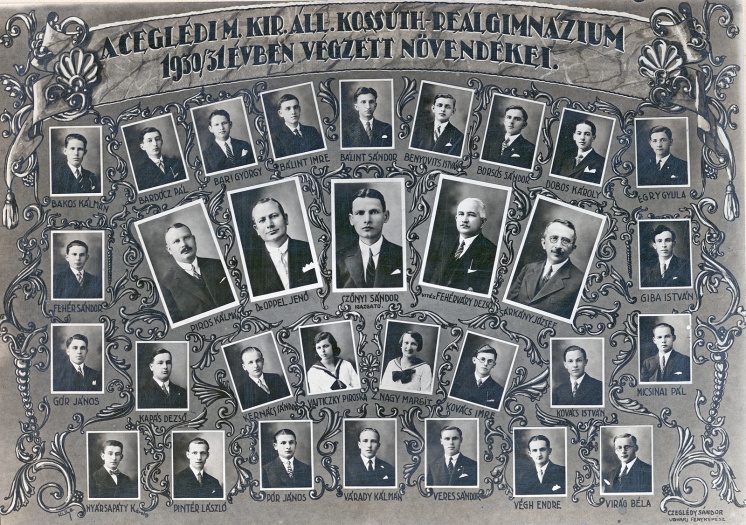 A CEGLÉDI M. KIR. ÁLL. KOSSUTH-REÁLGIMNÁZIUM
1930/31 ÉVBEN VÉGZETT NÖVENDÉKEI.
BAKOS KÁLMÁN
BARDÓCZ PÁL
BÁRI GYÖRGY
BÁLINT IMRE
BÁLINT SÁNDOR
BENYOVITS ISTVÁN
BORSÓS SÁNDOR
DOBOS KÁROLY
EGRY GYULA
FEHÉR SÁNDOR
PIROS KÁLMÁN
Dr OPPEL JENŐ
SZŐNYI SÁNDOR
IGAZGATÓ.
FEHÉRVÁRY DEZSŐ
ÁRKÁNY JÓZSEF
GIBA ISTVÁN
GÓR JÁNOS
KAPÁS DEZSŐ
KERNÁCS SÁNDOR
VAJTICZKY PIROSKA
NAGY MARGIT
KOVÁCS IMRE
KOVÁCS ISTVÁN
MICSINAI PÁL
NYÁRSAPÁTY
PINTÉR LÁSZLÓ
PÓR JÁNOS
VÁRADY KÁLMÁN
VERES SÁNDOR
VÉGH ENDRE
VIRÁG BÉLA
CZEGLÉDY SÁNDOR
UDVARI FÉNYKÉPÉSZ